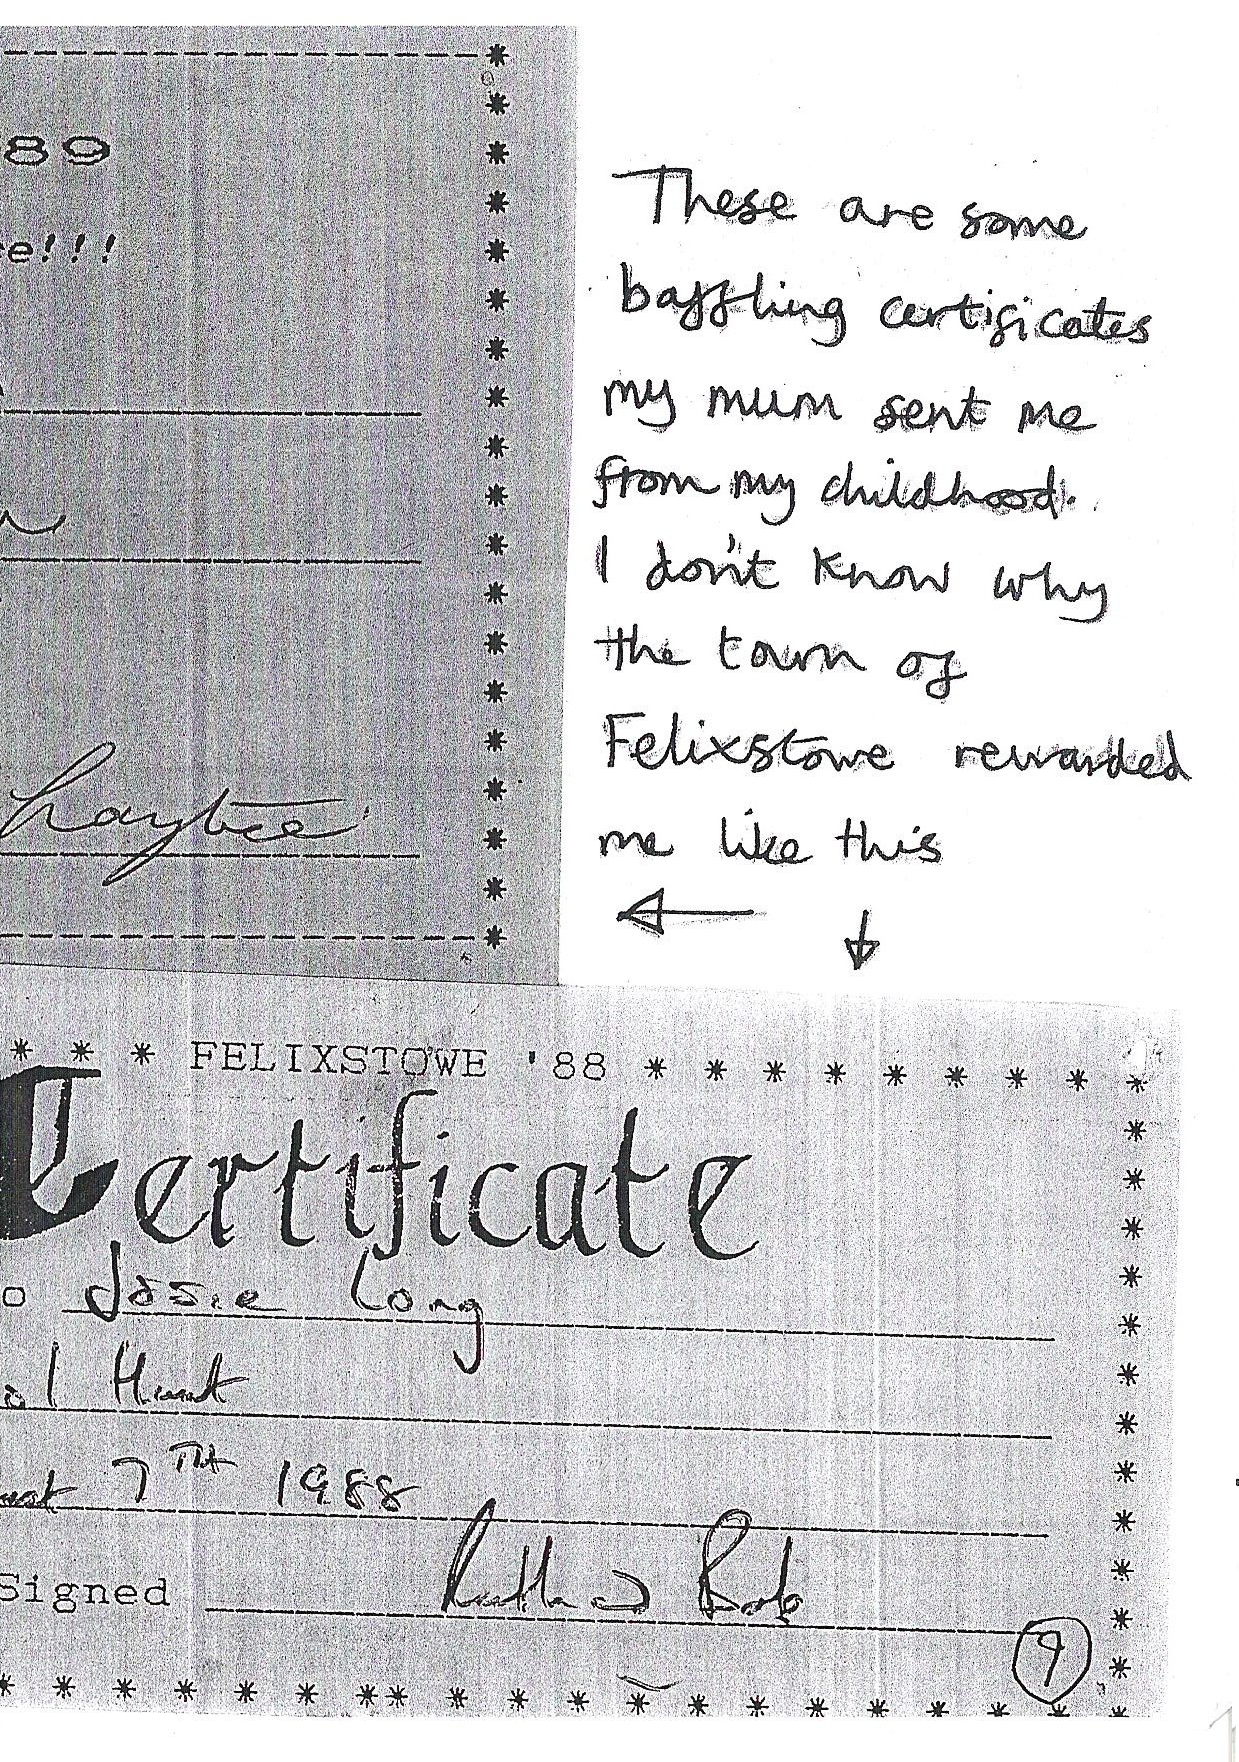 89
e!!!
These are some
baffling certificates
my mum sent me
from my childhood.
I don't know why
the town of
Felixstowe rewarded
me like this
* * * FELIXSTOWE '88 * * * * * * * * *
Certificate
o Josie Long
al Hunt
ust 7TH 1988
Signed Ruth & Bob
9